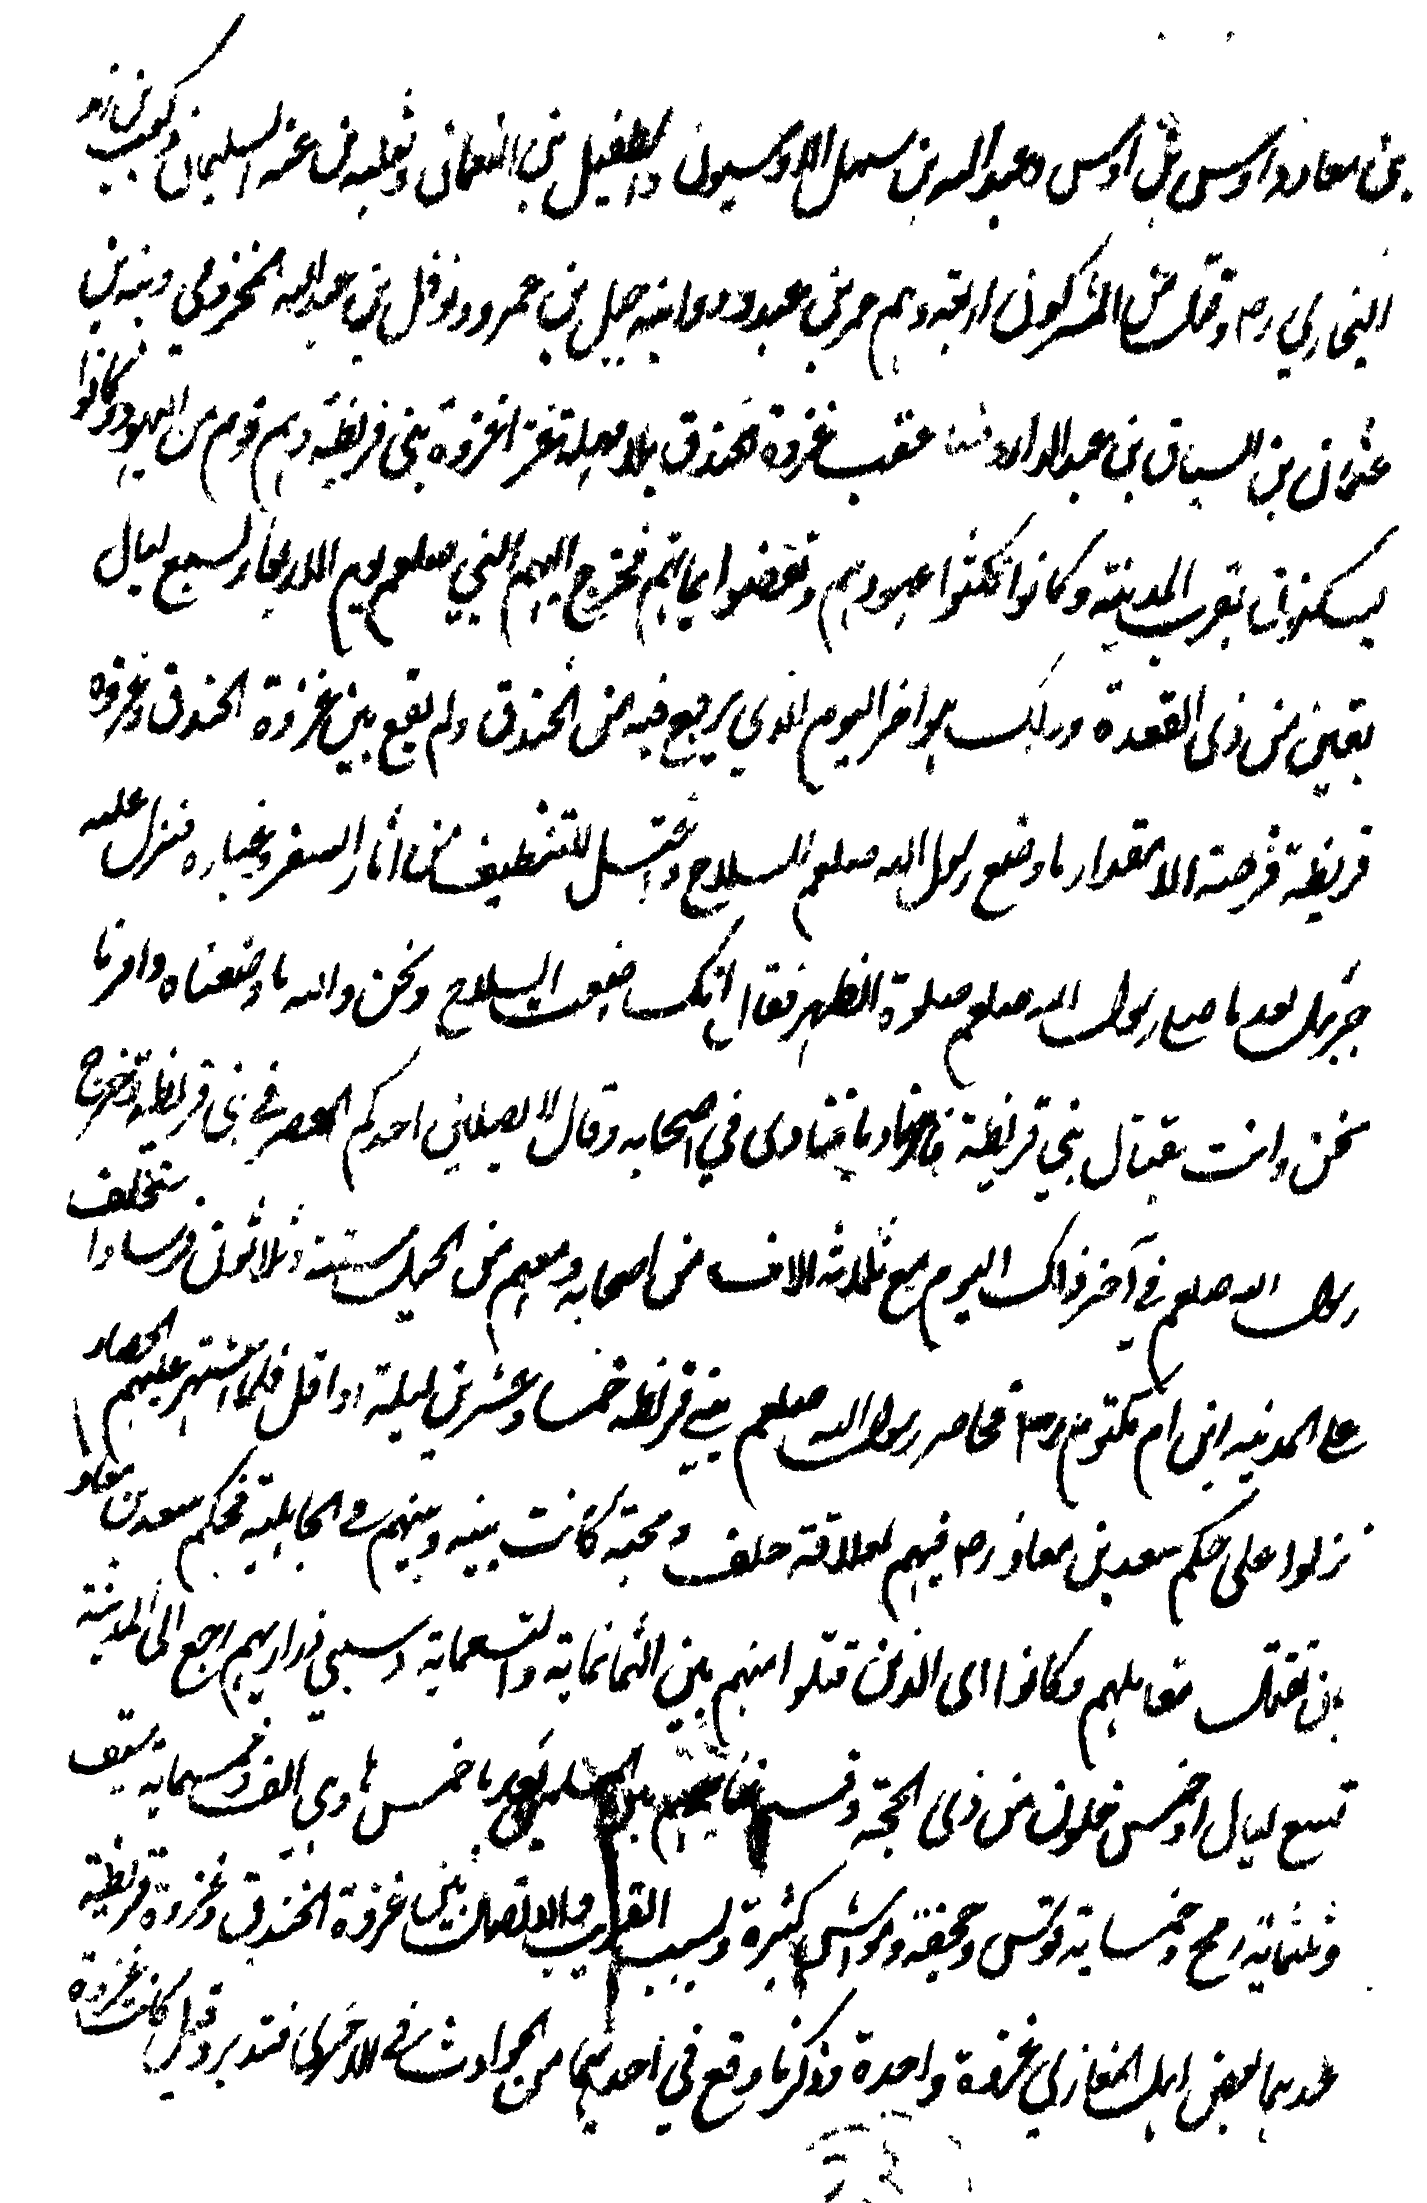 بن معاذ واوس بن اوس وعبد الله بن سهل الاوسيون والطفيل بن النعمان وثعلبه بن عنمه السلميان وكعب بن زيد
النجاري رض وقتل من المشركون اربعة وهم عمرو بن عبدود وابنه حسل بن عمرو ونوفل بن عبد الله المخزومي ومنبه بن
عثمان بن السباق بن عبد الدار عقب غزوة الخندق بلا مهلة غزا غزوة بني قريظة وهم قوم من اليهود وكانوا
يسكنون بقرب المدينة وكانوا نكثوا عهودهم ونقضوا ايمانهم فخرج اليهم النبي صلعم يوم الاربعاء لسبع ليال
بقين من ذى القعدة وذلك هو اخر اليوم الذي رجع فيه من الخندق ولم يقع بين غزوة الخندق وغزوة
قريظة فرصة الا بمقدار ما وضع رسول الله صلعم السلاح واغتسل للتنظيف من اثار السفر وغباره فنزل عليه
جبرئيل بعد ما صلى رسول الله صلعم صلوة الظهر فقال انك وضعت السلاح ونحن والله ما وضعناه وامرنا
نحن وانت بقتال بني قريظة فنادى في اصحابه وقال لا يصلين احدكم العصر الا في بنى قريظة فخرج
رسول الله صلعم في آخر ذلك اليوم مع ثلاثة الاف من اصحابه ومعهم من الخيل ستة وثلاثون فرسا واستخلف
على المدينه ابن ام مكتوم رض فحاصر رسول الله صلعم بني قريظه خمسا وعشرين ليلة او اقل فلما اشتد عليهم الحصار
نزلوا على حكم سعد بن معاذ رض فيهم لعلاقة حلف ومحبة كانت بينه وبينهم في الجاهلية فحكم سعد بن معاذ
بان تقتل مقاتلهم وكانوا اى الذين قتلوا منهم بين الثمانماية والتسعماية وسبي ذراريهم ورجع الى المدينة
لسبع ليال او خمس خلون من ذى الحجة وقسم غنايمهم بين المسلمين بعد ما خمس هاوي الف وخمسماية سيف
وثلثماية رمح وخمسماية ترس وحجفة ومواشى كثيرة وبسبب القرب والاتصال بين غزوة الخندق وغزوة قريظة
عدهما بعض اهل المغازي غزوة واحدة وذكر ما وقع في احديهما من الحوادث في الاخرى فتدبر وقيل كانت غزوة